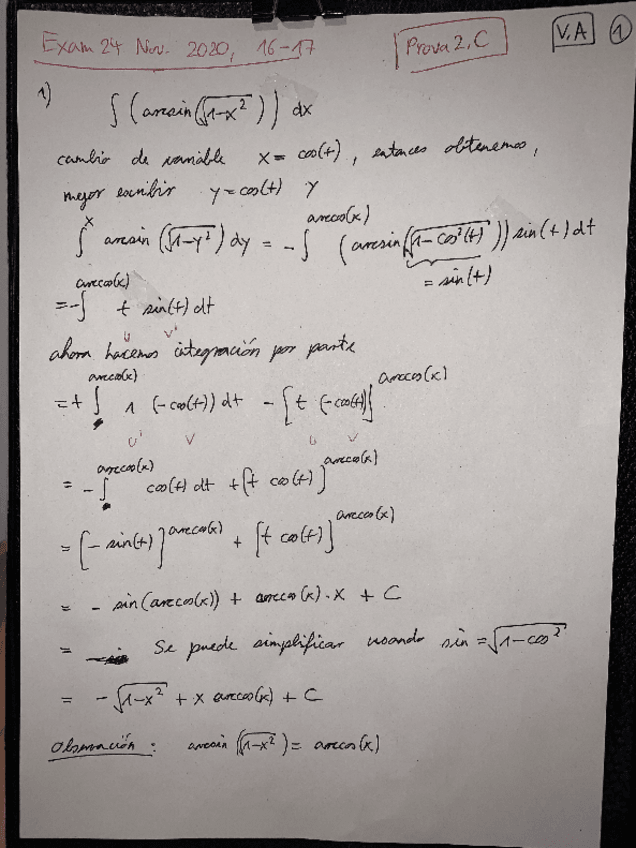 Exam 24 Nov. 2020, 16-17
Prova 2, C
V.A
1
1) ∫ (arcsin(√(1-x²))) dx
cambio de variable x = cos(t), entonces obtenemos,
mejor escribir y = cos(t) y
∫^x arcsin (√(1-y²)) dy = - ∫^arccos(x) (arcsin(√(1-cos²(t)))) sin(t) dt
= sin(t)
= - ∫^arccos(x) t sin(t) dt
u v'
ahora hacemos integración por parte
= + ∫^arccos(x) 1 (-cos(t)) dt - [t (-cos(t))]^arccos(x)
u' v u v
= - ∫^arccos(x) cos(t) dt + [t cos(t)]^arccos(x)
= [- sin(t)]^arccos(x) + [t cos(t)]^arccos(x)
= - sin(arccos(x)) + arccos(x) · x + C
= Se puede simplificar usando sin = √(1-cos²)
= - √(1-x²) + x arccos(x) + C
Observación: arcsin (√(1-x²)) = arccos(x)